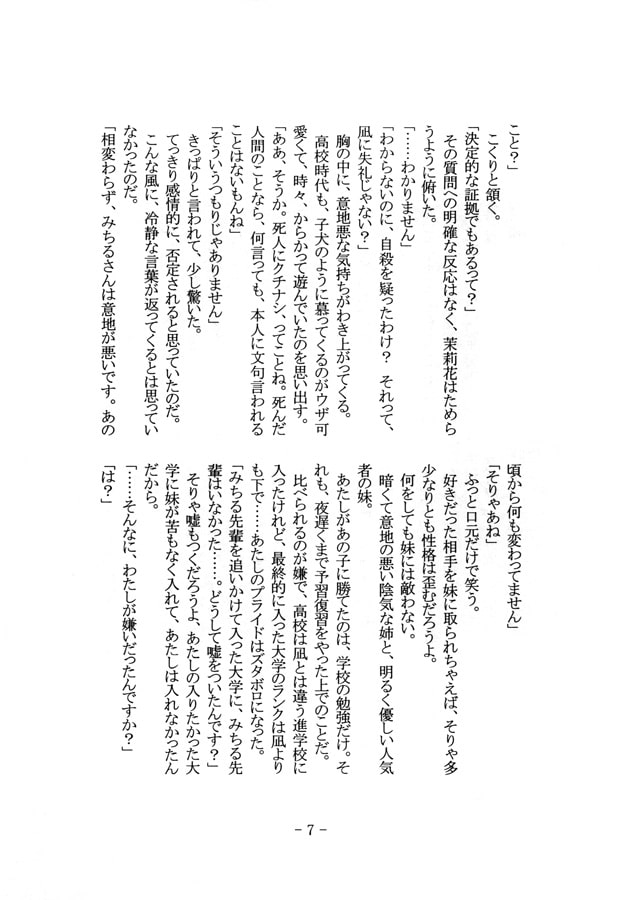 こと？」
　こくりと頷く。
「決定的な証拠でもあるって？」
　その質問への明確な反応はなく、茉莉花はためら
うように俯いた。
「……わかりません」
「わからないのに、自殺を疑ったわけ？　それって、
凪に失礼じゃない？」
　胸の中に、意地悪な気持ちがわき上がってくる。
　高校時代も、子犬のように慕ってくるのがウザ可
愛くて、時々、からかって遊んでいたのを思い出す。
「ああ、そうか。死人にクチナシ、ってことね。死んだ
人間のことなら、何言っても、本人に文句言われる
ことはないもんね」
「そういうつもりじゃありません」
　きっぱりと言われて、少し驚いた。
　てっきり感情的に、否定されると思っていたのだ。
　こんな風に、冷静な言葉が返ってくるとは思ってい
なかったのだ。
「相変わらず、みちるさんは意地が悪いです。あの
頃から何も変わってません」
「そりゃあね」
　ふっと口元だけで笑う。
　好きだった相手を妹に取られちゃえば、そりゃ多
少なりとも性格は歪むだろうよ。
　何をしても妹には敵わない。
　暗くて意地の悪い陰気な姉と、明るく優しい人気
者の妹。
　あたしがあの子に勝てたのは、学校の勉強だけ。そ
れも、夜遅くまで予習復習をやった上でのことだ。
　比べられるのが嫌で、高校は凪とは違う進学校に
入ったけれど、最終的に入った大学のランクは凪より
も下で……あたしのプライドはズタボロになった。
「みちる先輩を追いかけて入った大学に、みちる先
輩はいなかった……。どうして嘘をついたんです？」
　そりゃ嘘もつくだろうよ、あたしの入りたかった大
学に妹が苦もなく入れて、あたしは入れなかったん
だから。
「……そんなに、わたしが嫌いだったんですか？」
「は？」
- 7 -